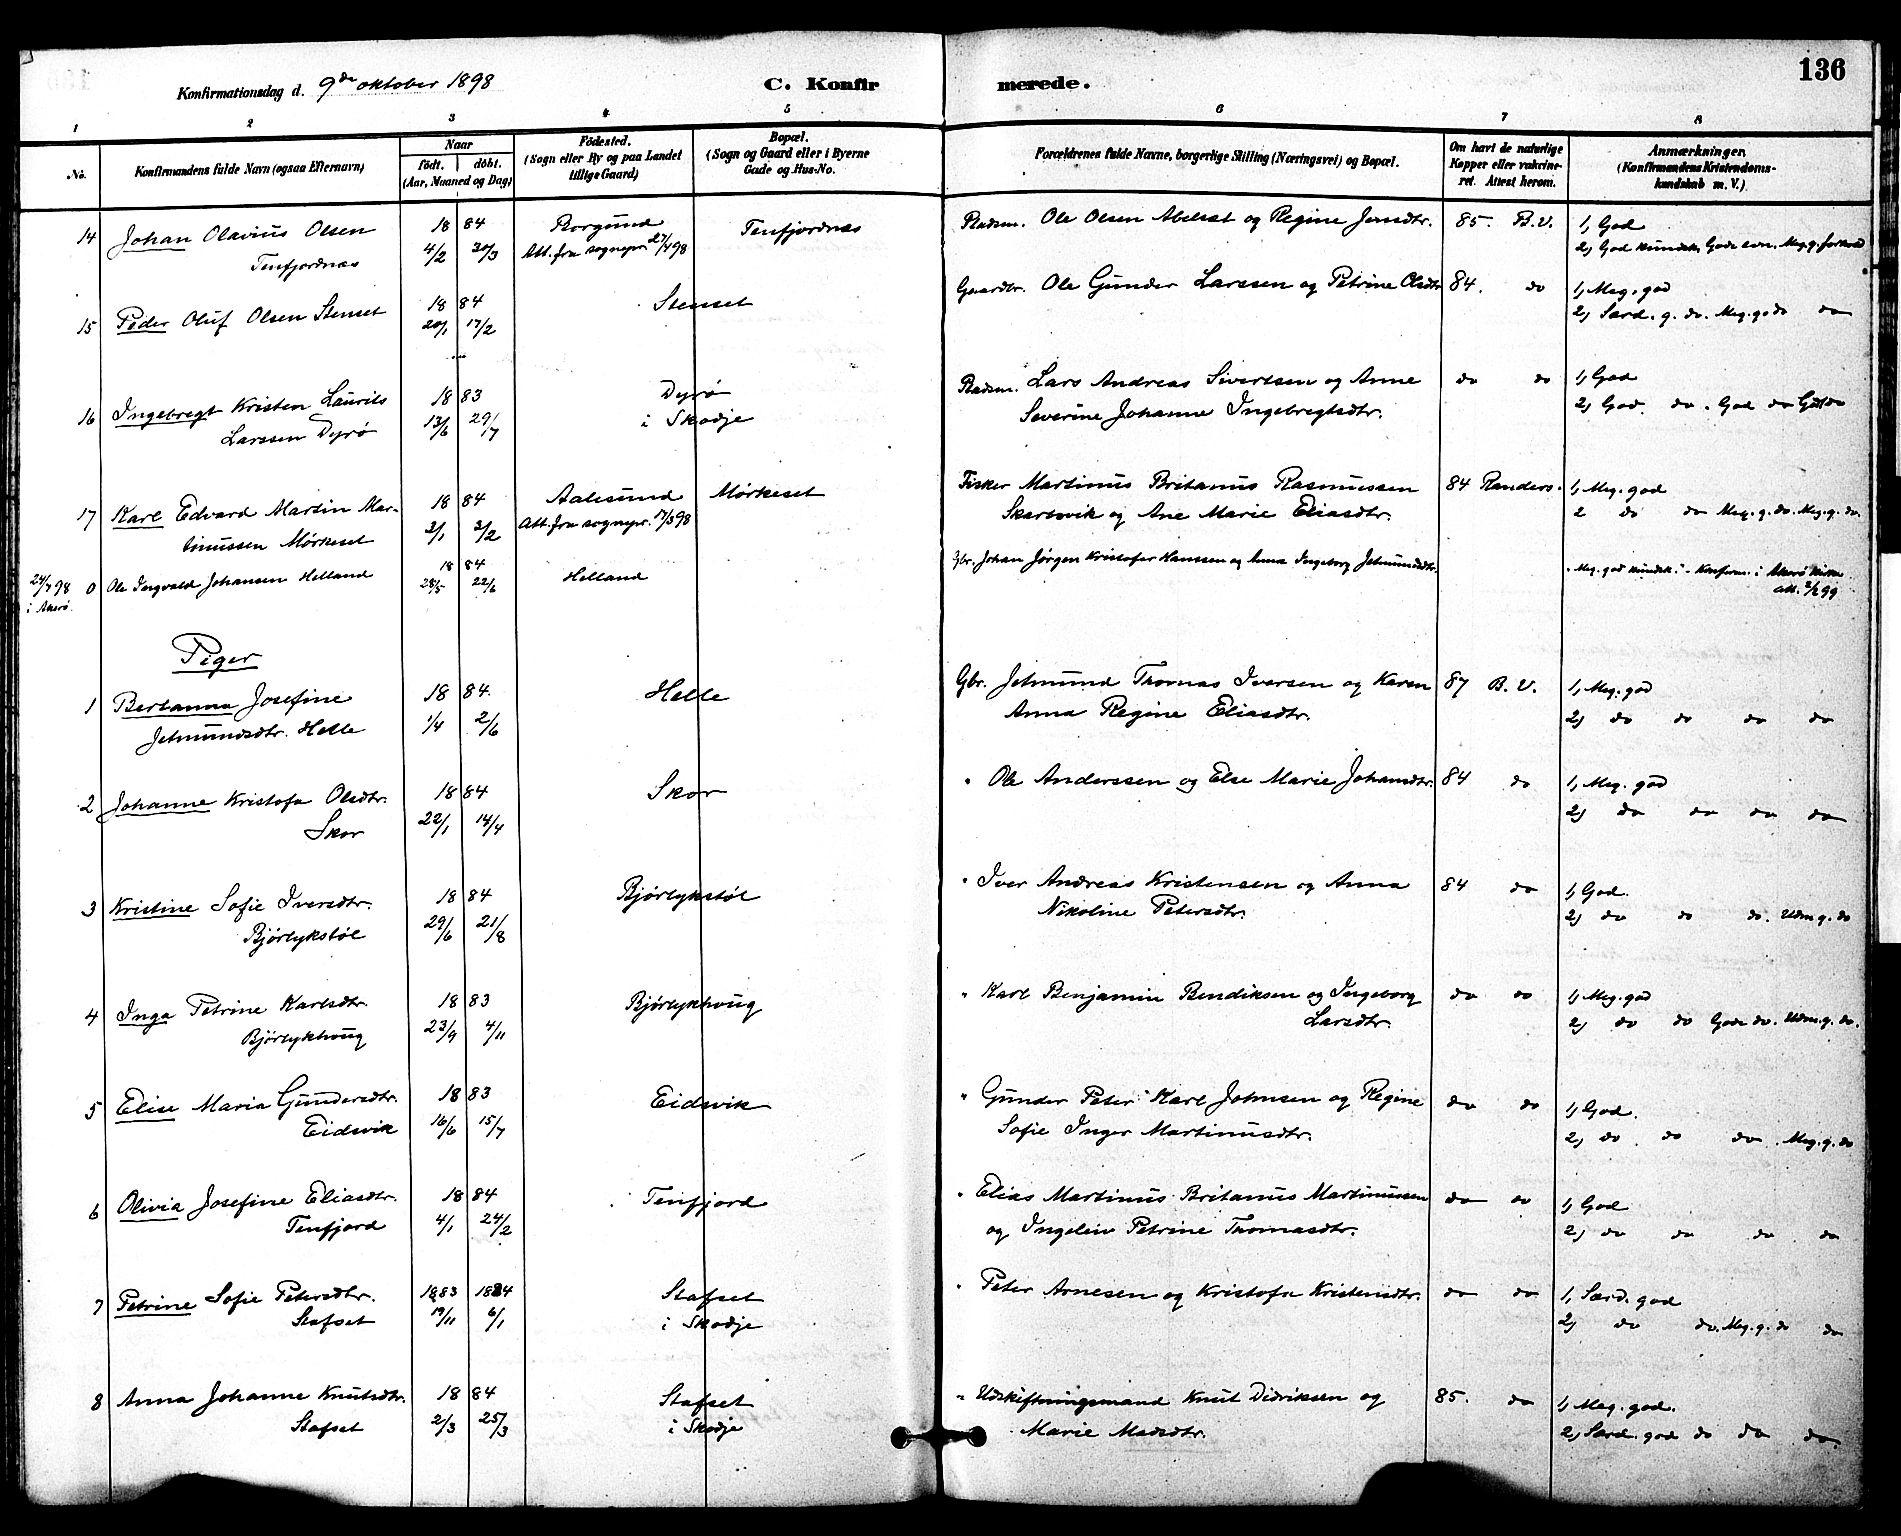 136
Konfirmationsdag d. 9de oktober 1898 C. Konfir merede.
1 2 3 4 5 6 7 8
No. Konfirmandens fulde Navn (ogsaa Efternavn) Naar födt. döbt. (Aar, Maaned og Dag) Födested. (Sogn eller By og paa Landet tillige Gaard) Bopæl. (Sogn og Gaard eller i Byerne Gade og Hus-No. Forældrenes fulde Navne, borgerlige Stilling (Næringsvei) og Bopæl. Om havt de naturlige Kopper eller vakcineret. Attest herom. Anmærkninger. (Konfirmandens Kristendomskundskab m. V.)
14 Johan Olavius Olsen 18 84 Borgund Tenfjordnæs Pladsm. Ole Olsen Abelset og Regine Jensdtr. 85. B.V. 1, God
Tenfjordnæs 4/2 30/3 Att. fra sognepr. 27/4 98 2, God kundsk. Gode evn. Meg. g. forhold
15 Peder Oluf Olsen Stenset 18 84 Stenset Gaardbr. Ole Gunder Larssen og Petrine Olsdtr 84. do 1, Meg. god
20/1 17/2 2, Særd. g. do. Meg. g. do do
16 Ingebregt Kristen Laurits 18 83 Dyrø Pladsm. Lars Andreas Sivertsen og Anne do do 1, God
Larssen Dyrø 13/6 29/7 i Skodje Severine Johanne Ingebregtsdtr. 2, God. do. God do God do
17 Karl Edvard Martin Mar- 18 84 Aalesund Mørkeset Fisker Martinus Britanus Rasmussen 84 Randers. 1, Meg. god
tinussen Mørkeset 2/1 3/2 Att. fra sognepr. 17/3 98 Skarbøvik og Ane Marie Eliasdtr. 2 do do Meg. g. do. Meg. g. do.
24/7 98 i Akerø. 0 Ole Ingvald Johansen Helland 18 84 28/5 22/6 Helland Gbr. Johan Jørgen Kristofer Hanssen og Anna Ingeborg Jetmundsdtr. "Meg. god kundsk." - Konfirm. i Akerø kirke
att. 2/2 99
Piger
1 Bertanna Josefine 18 84. Helle Gbr. Jetmund Thomas Iversen og Karen 87 B. V. 1, Meg. god
Jetmundsdtr. Helle 1/4 2/6 Anna Regine Eliasdtr. 2, do do do do
2 Johanne Kristofa Olsdtr. 18 84 Skor " Ole Anderssen og Else Marie Johansdtr. 84 do 1, Meg. god
Skor 22/1 14/4 2, do do do do
3 Kristine Sofie Iversdtr. 18 84 Bjørlykstøl " Iver Andreas Kristensen og Anna 84 do 1, God.
Bjørlykstøl 29/6 21/8 Nikoline Petersdtr. 2, do do do. Udm. g. do
4 Inga Petrine Karlsdtr. 18 83 Bjørlykhoug " Karl Benjamin Bendiksen og Ingeborg do do 1, Meg. god
Bjørlykhoug 23/9 4/11 Larsdtr. 2, do do Gode do. Udm. g. do.
5 Elise Maria Gundersdtr. 18 83 Eidsvik " Gunder Peter Karl Johnsen og Regine do do 1, God.
Eidsvik 16/6 15/7 Sofie Inger Martinusdtr. 2, do do do Meg. g. do
6 Olivia Josefine Eliasdtr. 18 84 Tenfjord " Elias Martinus Britanus Martinussen do do 1, God
Tenfjord 4/1 24/2 og Ingeleiv Petrine Thomasdtr. 2, do do do do
7 Petrine Sofie Petersdtr. 1883 1884 Stafset " Peter Arnesen og Kristofa Kristensdtr. do do 1, Særd. god
Stafset 19/11 6/1 i Skodje 2, do do. Meg. g. do do
8 Anna Johanne Knutsdtr. 18 84 Stafset " Udskiftningsmand Knut Didriksen og 85. do 1, Meg. god.
Stafset 2/3 25/3 i Skodje Marie Madsdtr. 2, Særd. god do do do.